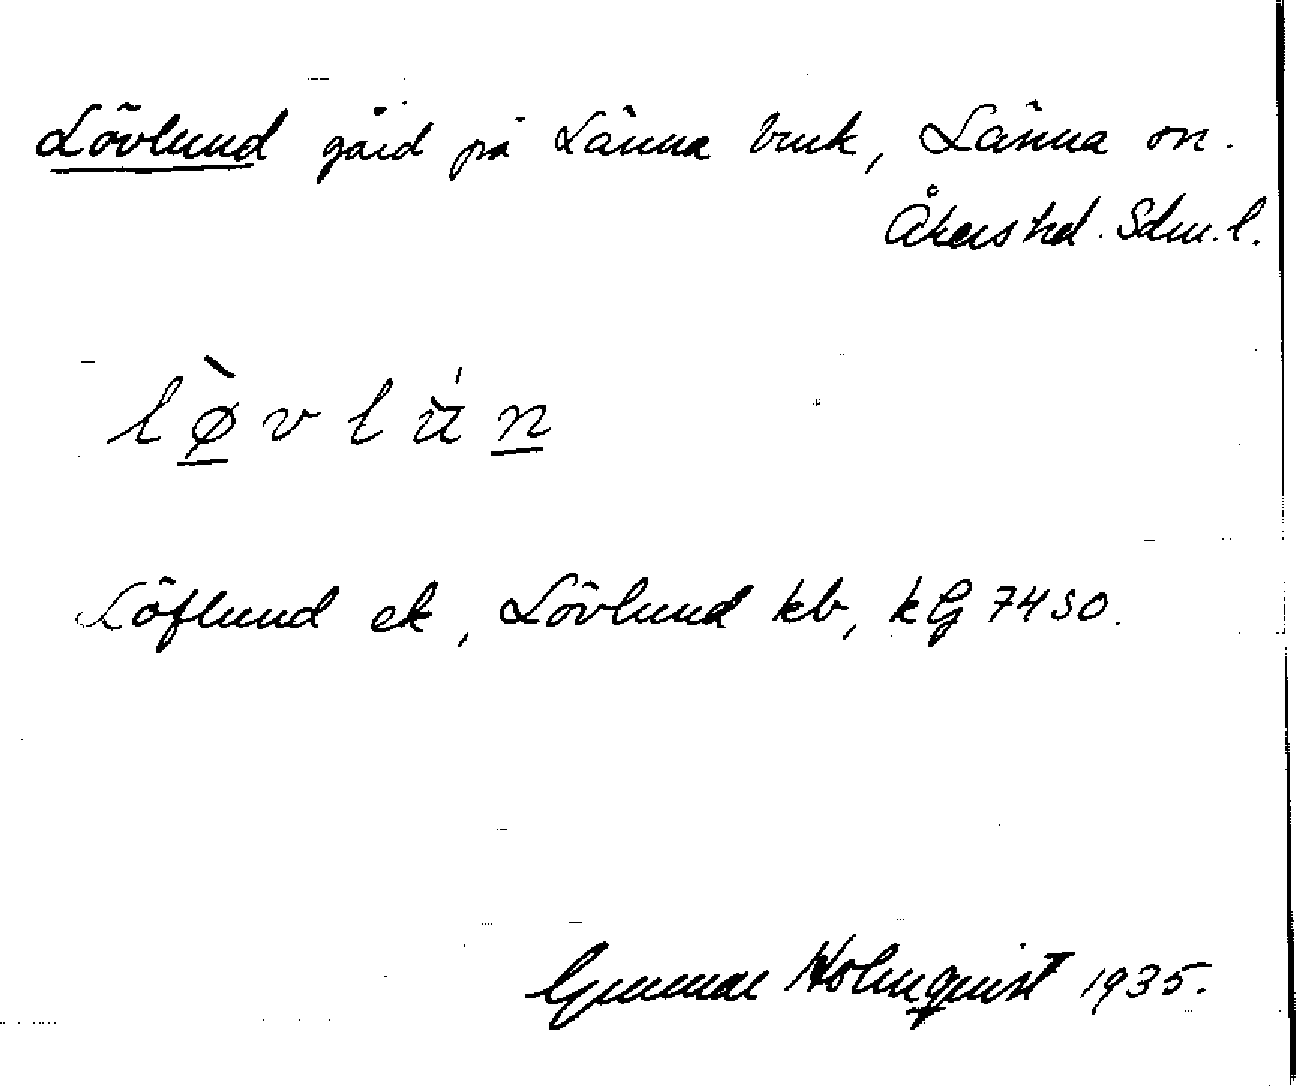 Lövlund gård på Länna bruk, Länna sn.
Åkers hd. Sdm. l.
lø̀vlún
Löflund ek, Lövlund kb, kG 7450.
Gunnar Holmquist 1935.